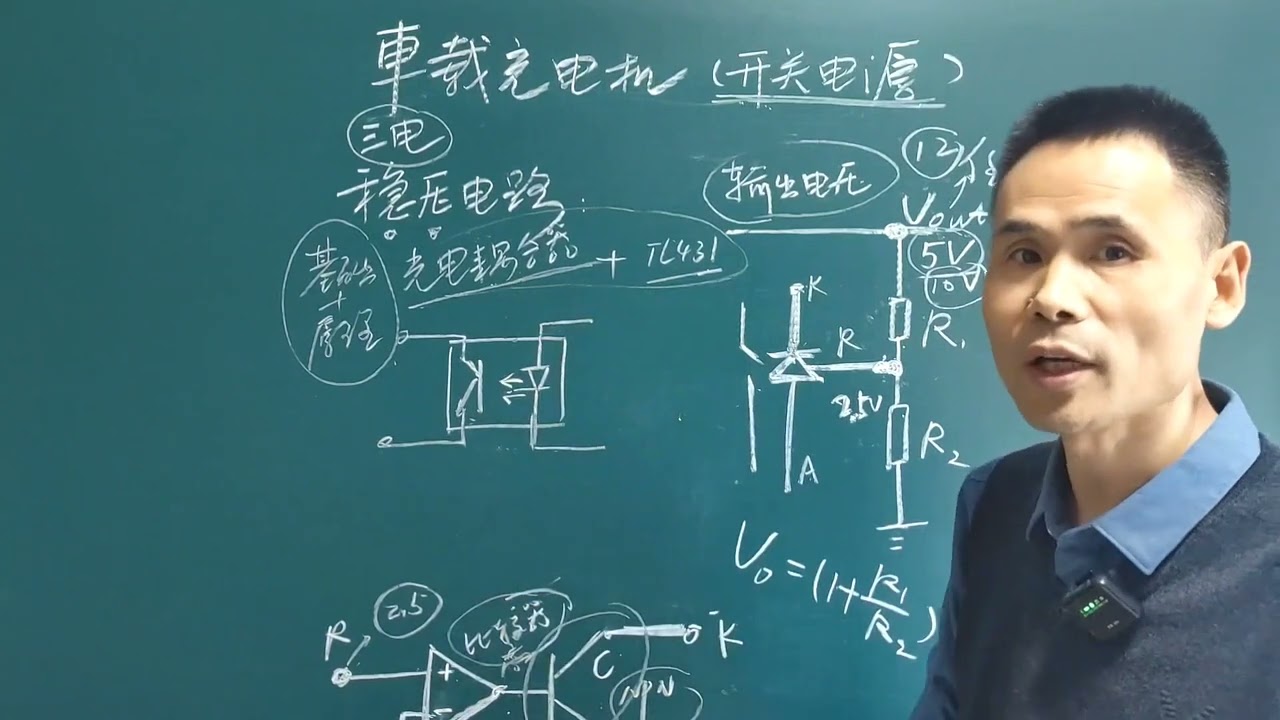 車载充电机(开关电源)
三电
稳压电路
输出电压
12
Vout
基础
+
原理
光电耦合器 + TL431
5V
10V
K
R
R₁
2.5V
R₂
A
V₀=(1+R₁/R₂)
2.5
R
比较器
K
+
C
NPN